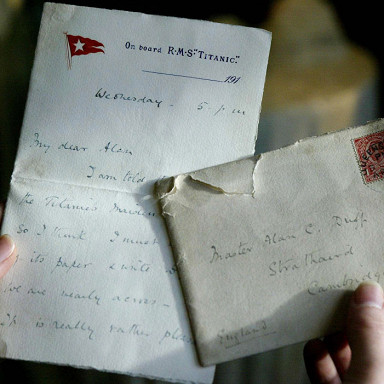 On board R·M·S·"TITANIC."
191
Wednesday - 5. p m
My dear Alan
I am told
the Titanic's Maiden
So I think I must
its paper & write
we are nearly across -
is really rather
Master Alan C. Duff
Cambridge
England